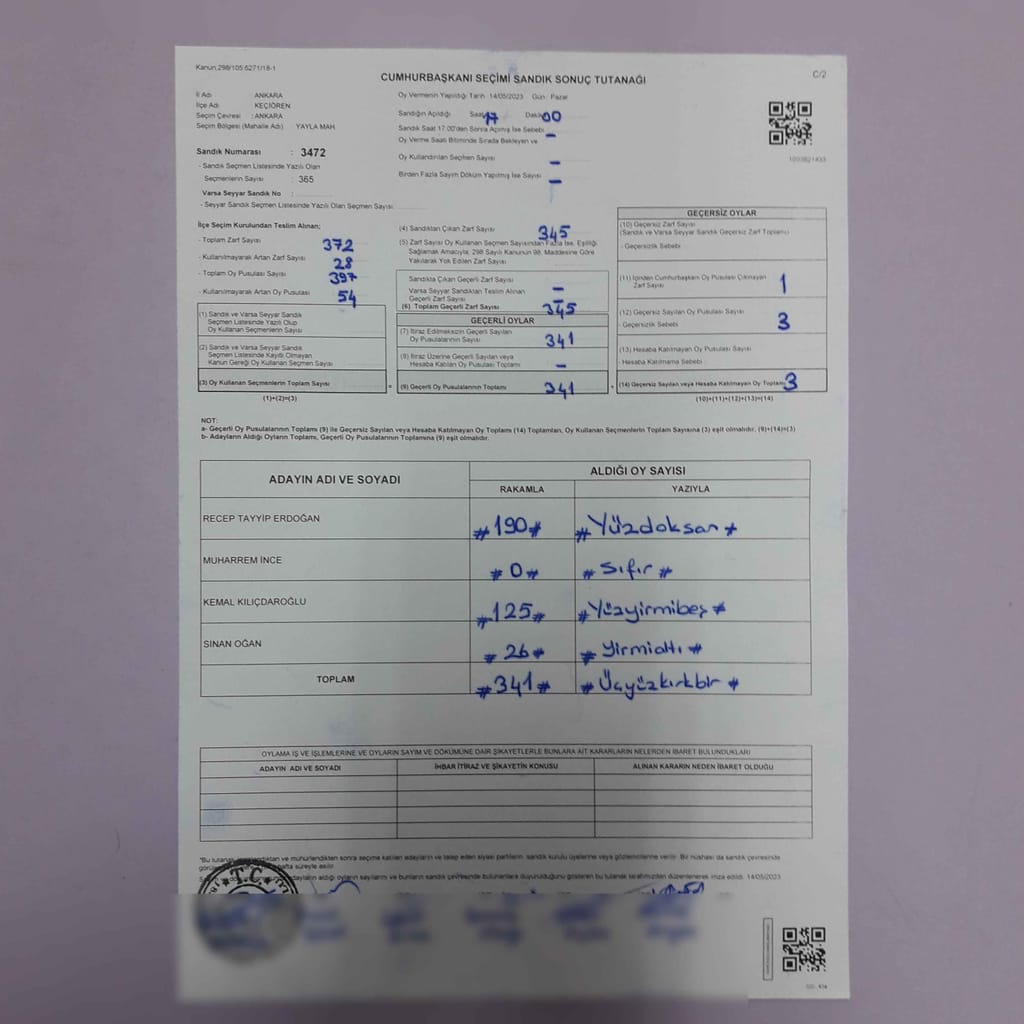 Kanun:298/105 6271/18-1
C/2
CUMHURBAŞKANI SEÇİMİ SANDIK SONUÇ TUTANAĞI
İl Adı ANKARA
İlçe Adı KEÇİÖREN
Seçim Çevresi : ANKARA
Seçim Bölgesi (Mahalle Adı) YAYLA MAH.
Sandık Numarası : 3472
- Sandık Seçmen Listesinde Yazılı Olan
Seçmenlerin Sayısı : 365
Varsa Seyyar Sandık No :
- Seyyar Sandık Seçmen Listesinde Yazılı Olan Seçmen Sayısı
Oy Vermenin Yapıldığı Tarih 14/05/2023 Gün: Pazar
Sandığın Açıldığı Saat 17 Dakika 00
Sandık Saat 17:00'den Sonra Açılmış İse Sebebi
Oy Verme Saati Bitiminde Sırada Bekleyen ve –
Oy Kullandırılan Seçmen Sayısı –
Birden Fazla Sayım Döküm Yapılmış İse Sayısı –
1093821433
İlçe Seçim Kurulundan Teslim Alınan;
- Toplam Zarf Sayısı 372
- Kullanılmayarak Artan Zarf Sayısı 28
- Toplam Oy Pusulası Sayısı 397
- Kullanılmayarak Artan Oy Pusulası 54
(1) Sandık ve Varsa Seyyar Sandık
Seçmen Listesinde Yazılı Olup
Oy Kullanan Seçmenlerin Sayısı
(2) Sandık ve Varsa Seyyar Sandık
Seçmen Listesinde Kayıtlı Olmayan
Kanun Gereği Oy Kullanan Seçmen Sayısı
(3) Oy Kullanan Seçmenlerin Toplam Sayısı =
(1)+(2)=(3)
(4) Sandıktan Çıkan Zarf Sayısı 345
(5) Zarf Sayısı Oy Kullanan Seçmen Sayısından Fazla İse, Eşitliği
Sağlamak Amacıyla; 298 Sayılı Kanunun 98. Maddesine Göre
Yakılarak Yok Edilen Zarf Sayısı
Sandıkta Çıkan Geçerli Zarf Sayısı
Varsa Seyyar Sandıktan Teslim Alınan –
Geçerli Zarf Sayısı
(6) Toplam Geçerli Zarf Sayısı 345
GEÇERLİ OYLAR
(7) İtiraz Edilmeksizin Geçerli Sayılan
Oy Pusulasının Sayısı 341
(8) İtiraz Üzerine Geçerli Sayılan veya
Hesaba Katılan Oy Pusulası Toplamı –
(9) Geçerli Oy Pusulalarının Toplamı 341 +
GEÇERSİZ OYLAR
(10) Geçersiz Zarf Sayısı
(Sandık ve Varsa Seyyar Sandık Geçersiz Zarf Toplamı)
- Geçersizlik Sebebi
(11) İçinden Cumhurbaşkanı Oy Pusulası Çıkmayan
Zarf Sayısı 1
(12) Geçersiz Sayılan Oy Pusulası Sayısı
- Geçersizlik Sebebi 3
(13) Hesaba Katılmayan Oy Pusulası Sayısı
- Hesaba Katılmama Sebebi
(14) Geçersiz Sayılan veya Hesaba Katılmayan Oy Toplamı 3
(10)+(11)+(12)+(13)=(14)
NOT:
a- Geçerli Oy Pusulalarının Toplamı (9) ile Geçersiz Sayılan veya Hesaba Katılmayan Oy Toplamı (14) Toplamları, Oy Kullanan Seçmenlerin Toplam Sayısına (3) eşit olmalıdır. (9)+(14)=(3)
b- Adayların Aldığı Oyların Toplamı, Geçerli Oy Pusulalarının Toplamına (9) eşit olmalıdır.
ADAYIN ADI VE SOYADI ALDIĞI OY SAYISI
RAKAMLA YAZIYLA
RECEP TAYYİP ERDOĞAN #190# #Yüzdoksan#
MUHARREM İNCE #0# #Sıfır#
KEMAL KILIÇDAROĞLU #125# #Yüzyirmibeş#
SİNAN OĞAN #26# #Yirmialtı#
TOPLAM #341# #Üçyüzkırkbir#
OYLAMA İŞ VE İŞLEMLERİNE VE OYLARIN SAYIM VE DÖKÜMÜNE DAİR ŞİKAYETLERLE BUNLARA AİT KARARLARIN NELERDEN İBARET BULUNDUKLARI
ADAYIN ADI VE SOYADI İHBAR İTİRAZ VE ŞİKAYETİN KONUSU ALINAN KARARIN NEDEN İBARET OLDUĞU
*Bu tutanak ve mühürlendikten sonra seçime katılan adayların ve talep eden siyasi partilerin sandık kurulu üyelerine veya gözlemcilerine verilir. Bir nüshası da sandık çevresinde
hafta süreyle asılır.
adayların aldığı oyların sayılarını ve bunların sandık çevresinde bulunanlara duyurulduğunu gösteren bu tutanak tarafımızdan düzenlenerek imza edildi. 14/05/2023
T.C.